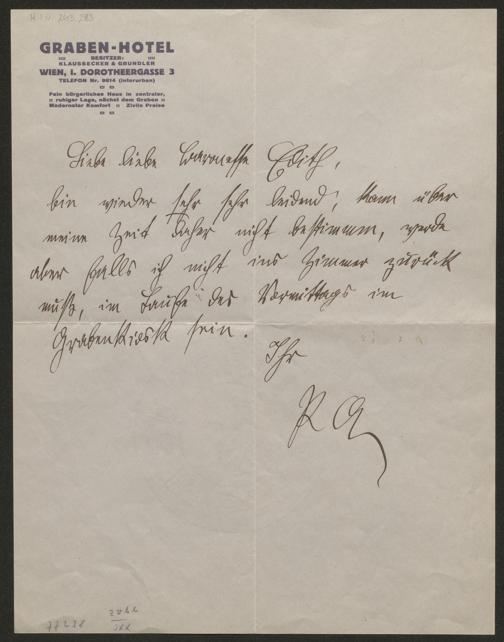 GRABEN-HOTEL
BESITZER:
KLAUSSECKER & GRUNDLER
WIEN, I. DOROTHEERGASSE 3
TELEFON Nr. 9614 (interurban)
Fein bürgerliches Haus in zentraler,
ruhiger Lage, nächst dem Graben
Modernster Komfort Zivile Preise
Liebe liebe Baronesse Edith,
bin wieder sehr sehr leidend, kann über
meine Zeit daher nicht bestimmen, werde
aber falls ich nicht ins Zimmer zurück
muß, im Laufe des Vormittags im
Grabenkiosk sein.
Ihr
PA